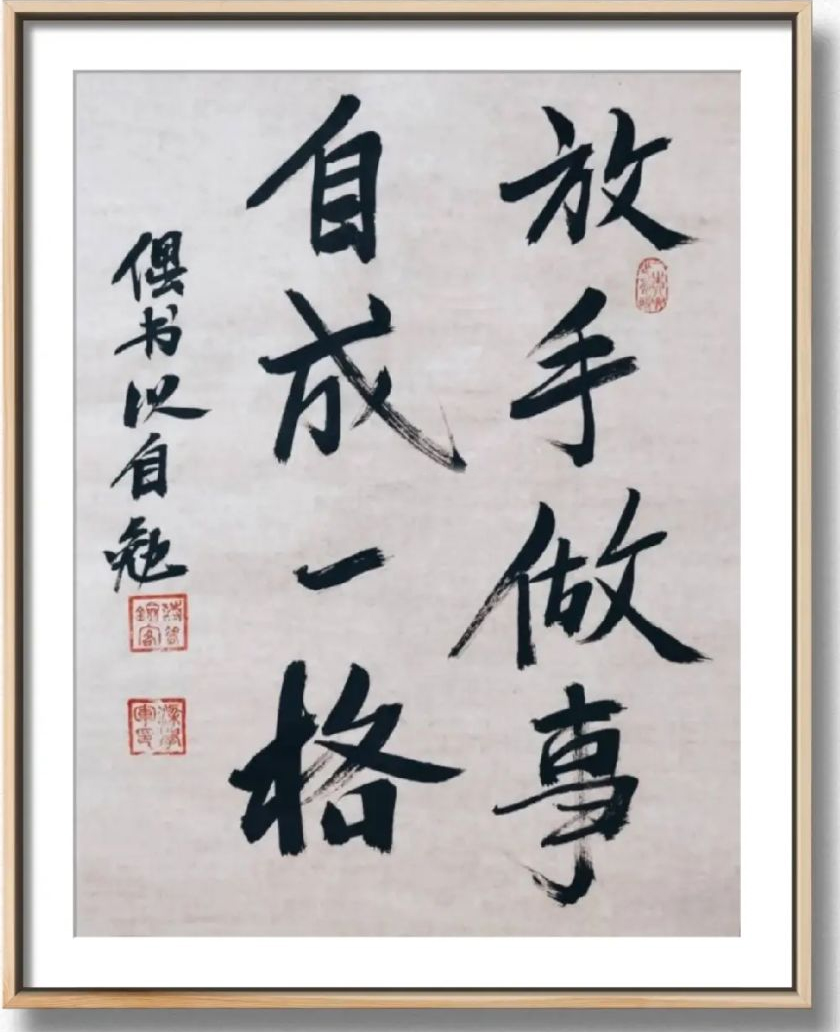 放手做事
自成一格
偶书以自勉